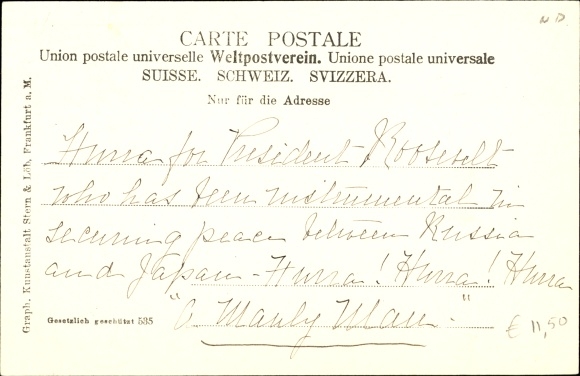 N.D.
CARTE POSTALE
Union postale universelle Weltpostverein. Unione postale universale
SUISSE. SCHWEIZ. SVIZZERA.
Nur für die Adresse
Hurra for President Roosevelt
who has been instrumental in
securing peace between Russia
and Japan - Hurra! Hurra! Hurra
"A Manly Man."
Gesetzlich geschützt 535
€ 11,50
Graph. Kunstanstalt Stern & Löb, Frankfurt a. M.